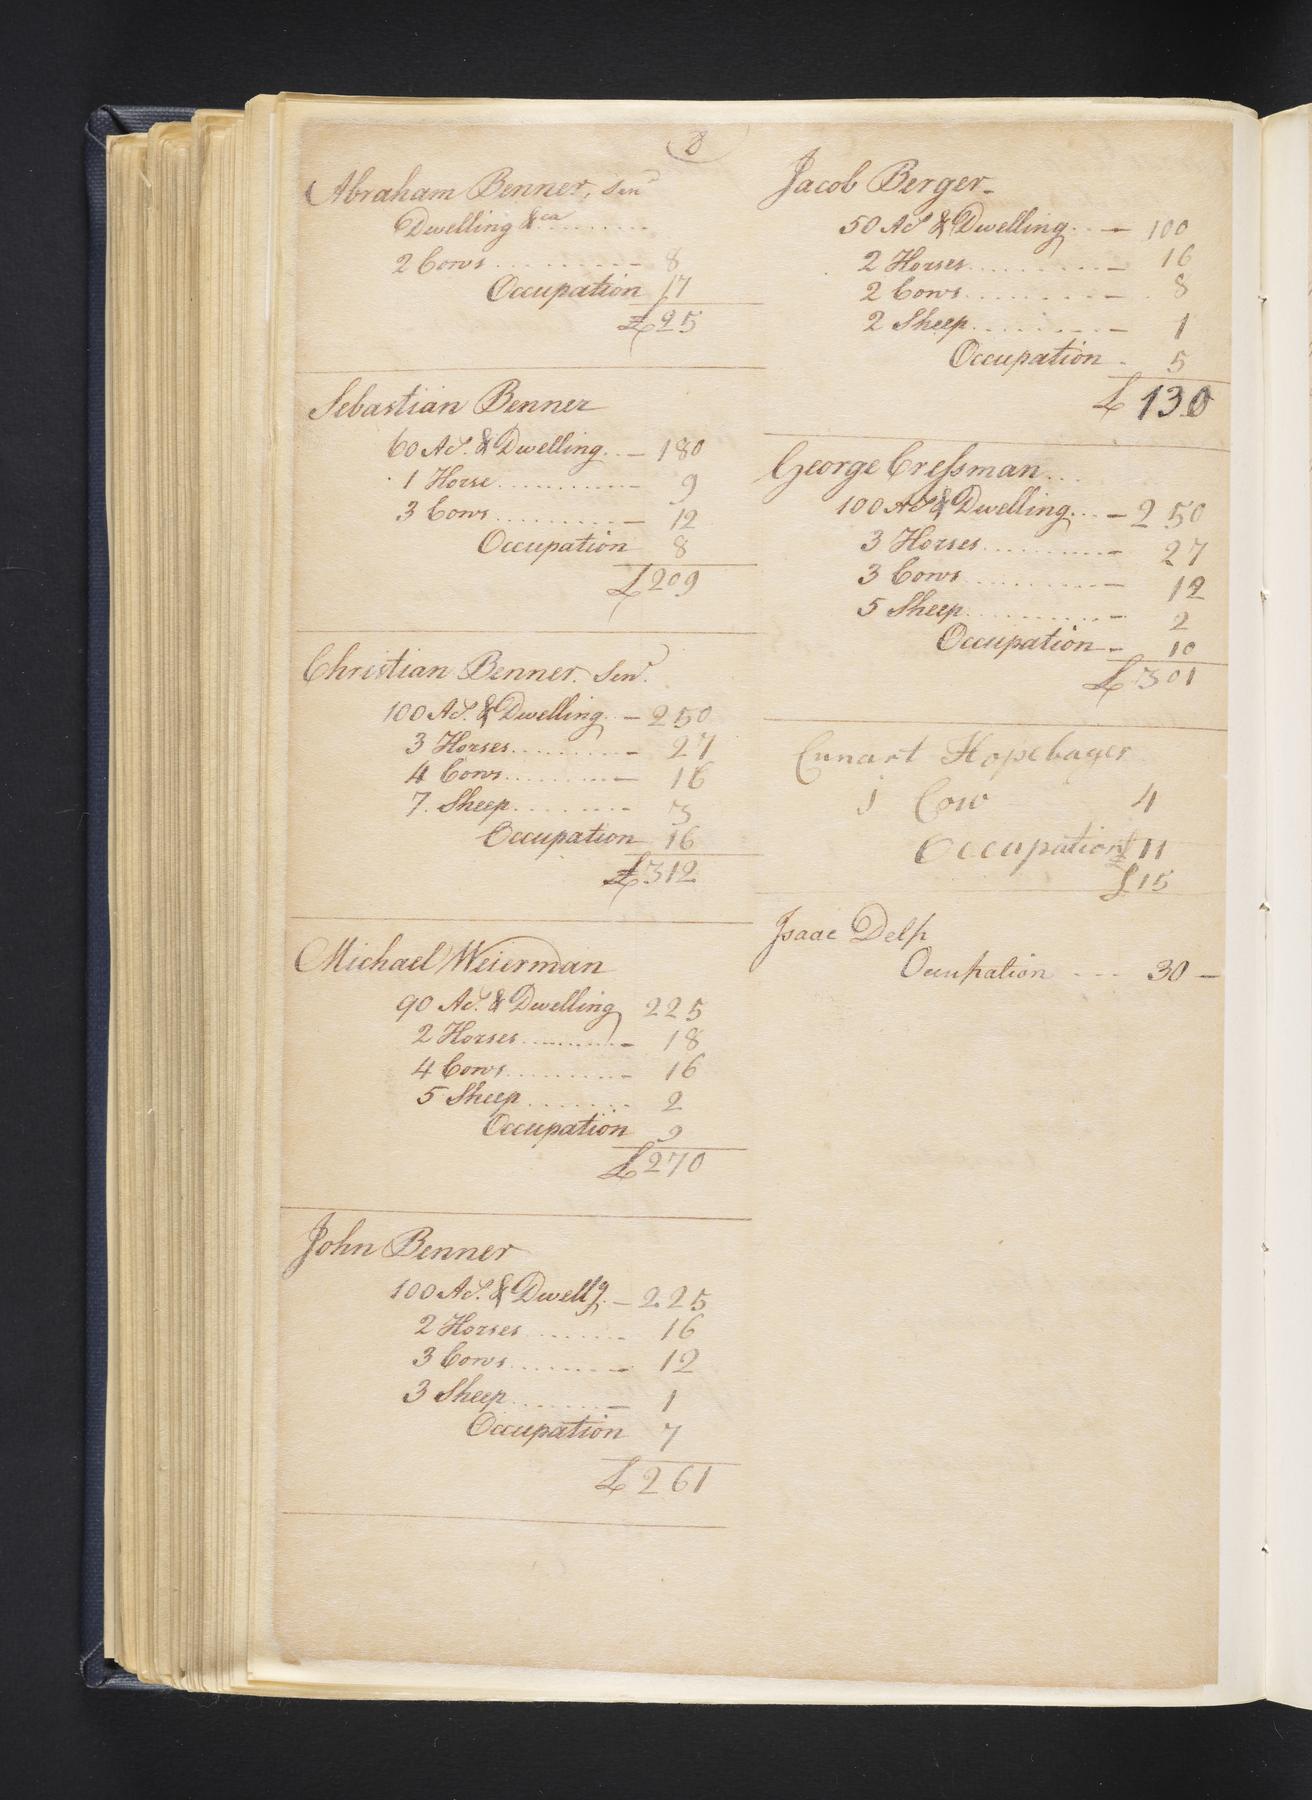 8
Abraham Benner, Senr
Dwelling &ca
2 Cows 8
Occupation 17
£25
Sebastian Benner
60 As. & Dwelling 180
1 Horse 9
3 Cows 12
Occupation 8
£209
Christian Benner. Senr.
100 As. & Dwelling 250
3 Horses 27
4 Cows 16
7 Sheep 3
Occupation 16
£312
Michael Weierman
90 As. & Dwelling 225
2 Horses 18
4 Cows 16
5 Sheep 2
Occupation 9
£270
John Benner
100 As. & Dwellg. 225
2 Horses 16
3 Cows 12
3 Sheep 1
Occupation 7
£261
Jacob Berger
50 As & Dwelling 100
2 Horses 16
2 Cows 8
2 Sheep 1
Occupation 5
£130
George Cressman
100 As & Dwelling 250
3 Horses 27
3 Cows 12
5 Sheep 2
Occupation 10
£301
Cunart Hopebager
1 Cow 4
Occupation 11
£15
Isaac Delp
Occupation --- 30 —